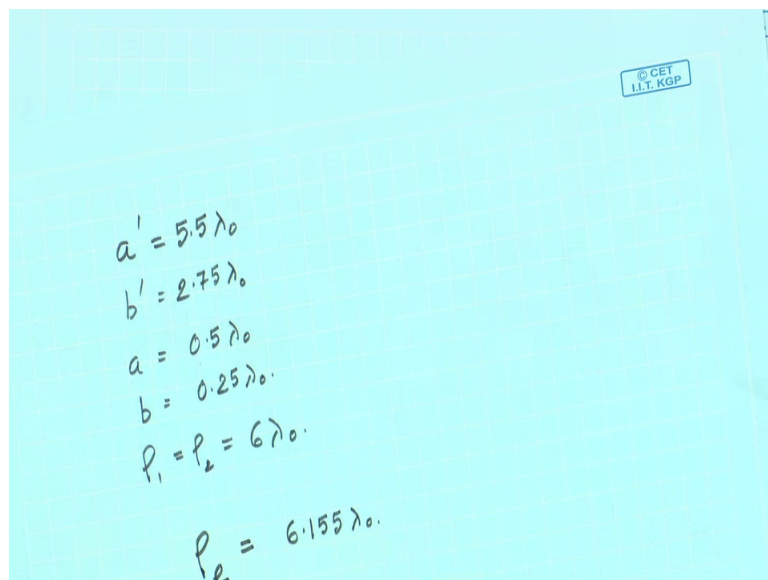 © CET
I.I.T. KGP
a' = 5.5λ₀
b' = 2.75λ₀
a = 0.5λ₀
b = 0.25λ₀.
ρ₁ = ρ₂ = 6λ₀.
ρₑ = 6.155λ₀.